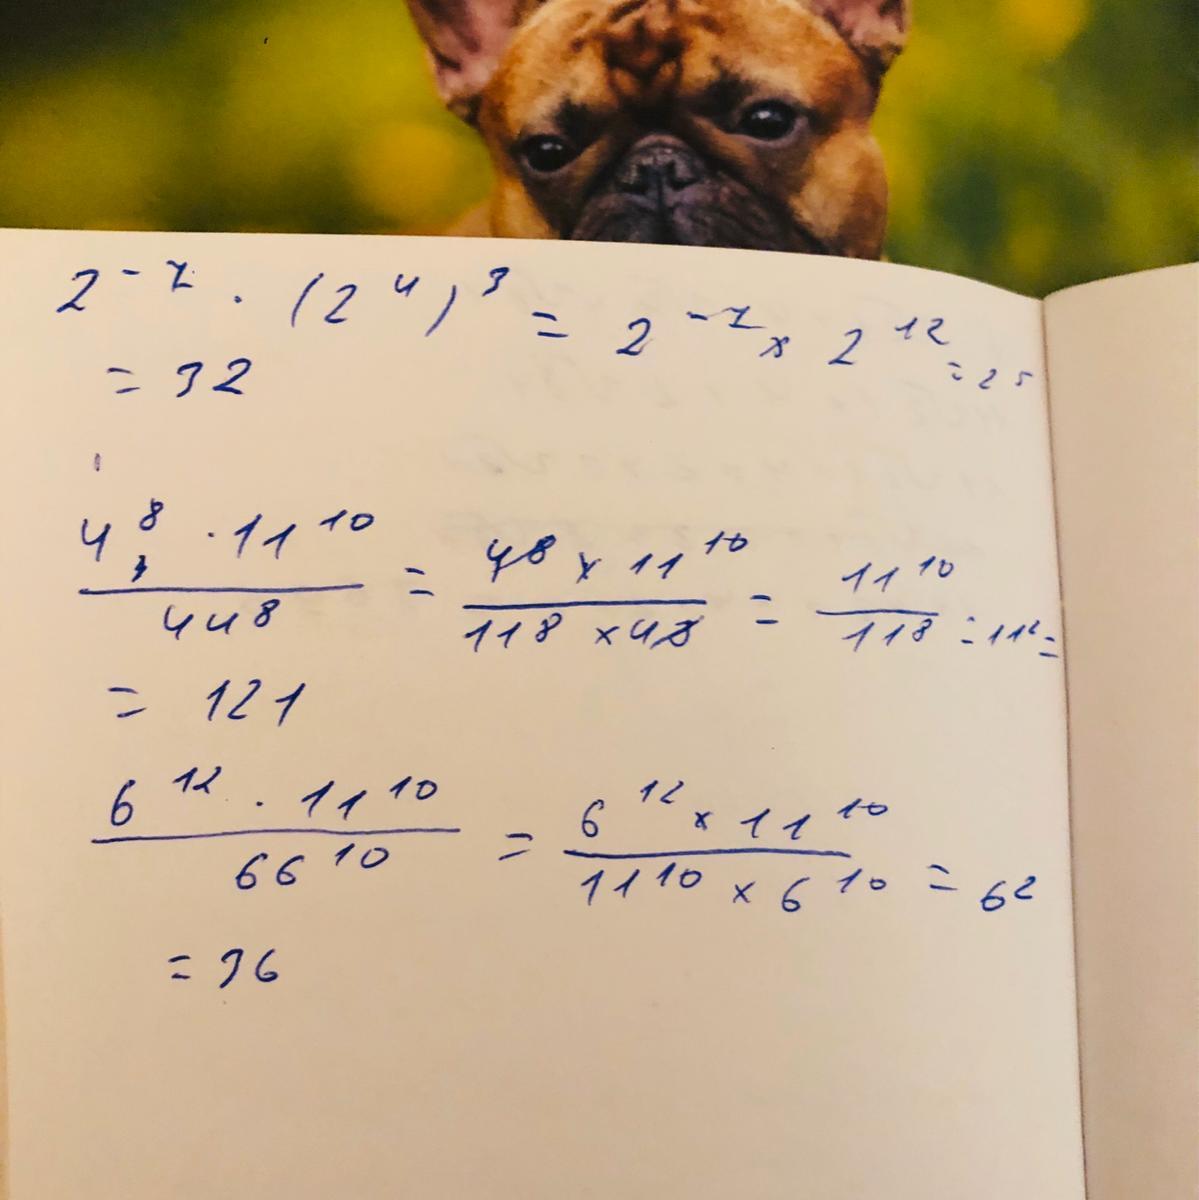 2⁻⁷ · (2⁴)³ = 2⁻⁷ × 2¹² = 2⁵
= 32
4⁸ · 11¹⁰ / 44⁸ = 4⁸ × 11¹⁰ / 11⁸ × 4⁸ = 11¹⁰ / 11⁸ = 11² =
= 121
6¹² · 11¹⁰ / 66¹⁰ = 6¹² × 11¹⁰ / 11¹⁰ × 6¹⁰ = 6²
= 36